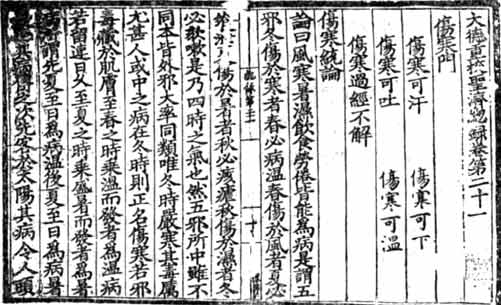 大德重校聖濟總録卷第二十一
傷寒門
傷寒可汗　傷寒可下
傷寒可吐　傷寒可温
傷寒過經不解
傷寒統論
論曰風寒暑濕飲食勞倦皆能為病是謂五
邪冬傷於寒者春必病温春傷於風者夏必
傷於暑者秋必痎瘧秋傷於濕者冬
必欬嗽是乃四時之氣也然五邪所中雖不
同本皆外邪大率同類唯冬時嚴寒其毒厲
尤甚人或中之病在冬時則正名傷寒若邪
毒藏於肌膚至春之時乘温而發者為温病
若留連日久至夏之時乘盛暑而發者為暑
病所謂先夏至日為病温後夏至日為病暑
寒之次先客於太陽其病令人頭